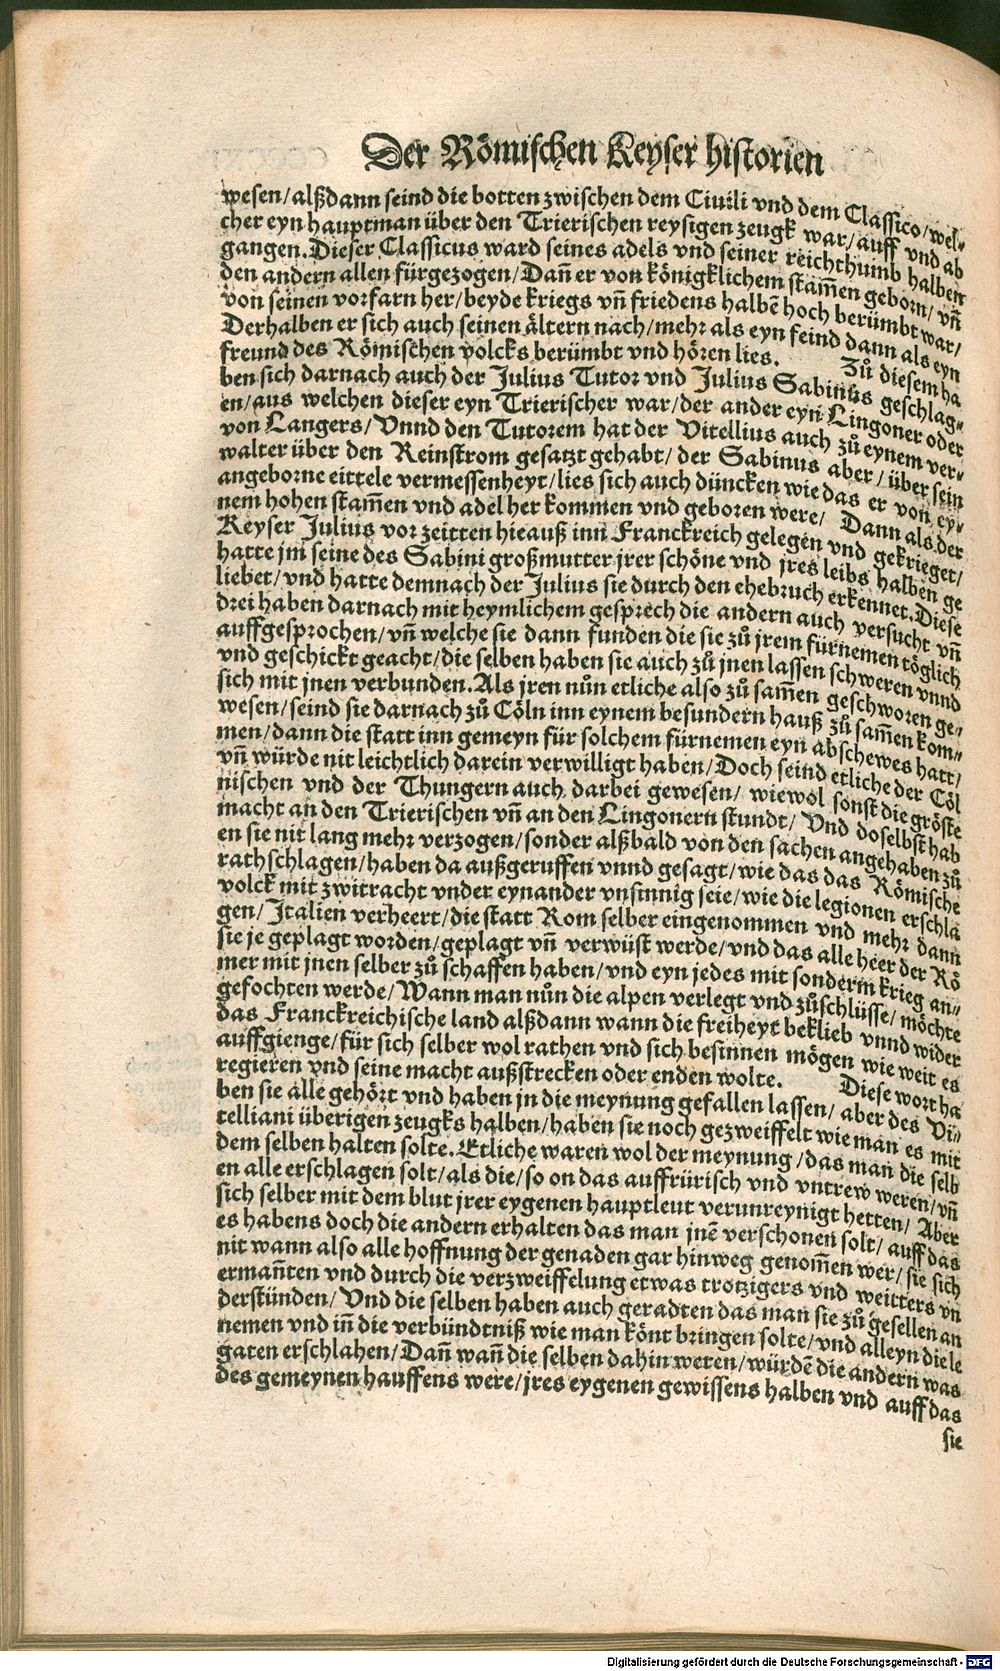 Der Römischen Keyser historien
wesen/alßdann seind die botten zwischen dem Ciuili vnd dem Classico/wel-
cher eyn hauptman über den Trierischen reysigen zeugk war/auff vnd ab
gangen. Dieser Classicus ward seines adels vnd seiner reichthumb halben
den andern allen fürgezogen/Dañ er von königklichem stam̃en geborn/vñ
von seinen vorfarn her/beyde kriegs vñ friedens halbẽ hoch berümbt war/
Derhalben er sich auch seinen ältern nach/mehr als eyn feind dann als eyn
freund des Römischen volcks berümbt vnd hören lies. Zů diesem ha
ben sich darnach auch der Julius Tutor vnd Julius Sabinus geschlag-
en/aus welchen dieser eyn Trierischer war/der ander eyn Lingoner oder
von Langers/Vnnd den Tutorem hat der Vitellius auch zů eynem ver-
walter über den Reinstrom gesatzt gehabt/der Sabinus aber/über sein
angeborne eittele vermessenheyt/lies sich auch düncken wie das er von ey-
nem hohen stam̃en vnd adel her kommen vnd geboren were/ Dann als der
Keyser Julius vor zeitten hieauß inn Franckreich gelegen vnd gekrieget/
hatte jm seine des Sabini großmutter jrer schöne vnd jres leibs halben ge
liebet/vnd hatte demnach der Julius sie durch den ehebruch erkennet. Diese
drei haben darnach mit heymlichem gesprech die andern auch versucht vñ
auffgesprochen/vñ welche sie dann funden die sie zů jrem fürnemen töglich
vnd geschickt geacht/die selben haben sie auch zů jnen lassen schweren vnnd
sich mit jnen verbunden. Als jren nůn etliche also zů sam̃en geschworen ge-
wesen/seind sie darnach zů Cöln inn eynem besundern hauß zů sam̃en kom-
men/dann die statt inn gemeyn für solchem fürnemen eyn abschewes hatt/
vñ würde nit leichtlich darein verwilligt haben/Doch seind etliche der Cöl
nischen vnd der Thungern auch darbei gewesen/ wiewol sonst die gröste
macht an den Trierischen vñ an den Lingonern stundt/ Vnd doselbst hab
en sie nit lang mehr verzogen/sonder alßbald von den sachen angehaben zů
rathschlagen/haben da außgeruffen vnnd gesagt/wie das das Römische
volck mit zwitracht vnder eynander vnsinnig seie/wie die legionen erschla
gen/Italien verheert/die statt Rom selber eingenommen vnd mehr dann
sie je geplagt worden/geplagt vñ verwüst werde/vnd das alle heer der Rö
mer mit jnen selber zů schaffen haben/vnd eyn jedes mit sonderm krieg an-
gefochten werde/Wann man nůn die alpen verlegt vnd zůschlüsse/möchte
das Franckreichische land alßdann wann die freiheyt beklieb vnnd wider
auffgienge/für sich selber wol rathen vnd sich besinnen mögen wie weit es
regieren vnd seine macht außstrecken oder enden wolte. Diese wort ha
ben sie alle gehört vnd haben jn die meynung gefallen lassen/ aber des Vi-
telliani überigen zeugks halben/haben sie noch gezweiffelt wie man es mit
dem selben halten solte. Etliche waren wol der meynung/das man die selb
en alle erschlagen solt/als die/so on das auffrürisch vnd vntrew weren/vñ
sich selber mit dem blut jrer eygenen hauptleut verunreynigt hetten/ Aber
es habens doch die andern erhalten das man jnẽ verschonen solt/auff das
nit wann also alle hoffnung der genaden gar hinweg genom̃en wer/sie sich
ermañten vnd durch die verzweiffelung etwas trotzigers vnd weitters vn
derstünden/Vnd die selben haben auch geradten das man sie zů gesellen an
nemen vnd iñ die verbündtniß wie man könt bringen solte/vnd alleyn die le
gaten erschlahen/Dañ wañ die selben dahin weren/würdẽ die andern was
des gemeynen hauffens were/jres eygenen gewissens halben vnd auff das
sie
Digitalisierung gefördert durch die Deutsche Forschungsgemeinschaft - DFG